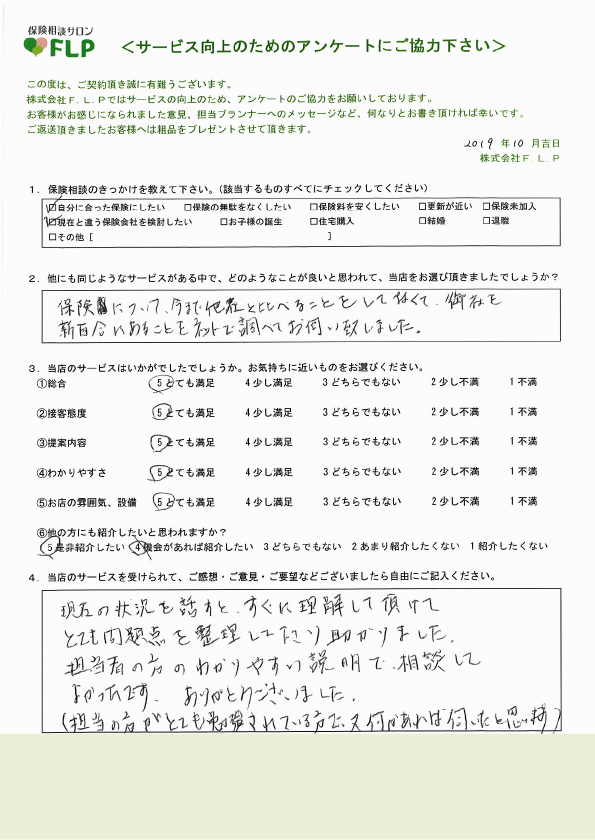 保険相談サロン
FLP
＜サービス向上のためのアンケートにご協力下さい＞
この度は、ご契約頂き誠に有難うございます。
株式会社F.L.Pではサービスの向上のため、アンケートのご協力をお願いしております。
お客様がお感じになられました意見、担当プランナーへのメッセージなど、何なりとお書き頂ければ幸いです。
ご返送頂きましたお客様へは粗品をプレゼントさせて頂きます。
2019 年 10 月吉日
株式会社F.L.P
1. 保険相談のきっかけを教えて下さい。（該当するものすべてにチェックしてください）
☑自分に合った保険にしたい □保険の無駄をなくしたい □保険料を安くしたい □更新が近い □保険未加入
☑現在と違う保険会社を検討したい □お子様の誕生 □住宅購入 □結婚 □退職
□その他 [ ]
2. 他にも同じようなサービスがある中で、どのようなことが良いと思われて、当店をお選び頂きましたでしょうか？
保険について、今まで他社と比べることをしてなくて、御社を
新百合にあることをネットで調べてお伺い致しました。
3. 当店のサービスはいかがでしたでしょうか。お気持ちに近いものをお選びください。
①総合 5とても満足 4少し満足 3どちらでもない 2少し不満 1不満
②接客態度 5とても満足 4少し満足 3どちらでもない 2少し不満 1不満
③提案内容 5とても満足 4少し満足 3どちらでもない 2少し不満 1不満
④わかりやすさ 5とても満足 4少し満足 3どちらでもない 2少し不満 1不満
⑤お店の雰囲気、設備 5とても満足 4少し満足 3どちらでもない 2少し不満 1不満
⑥他の方にも紹介したいと思われますか？
5是非紹介したい 4機会があれば紹介したい 3どちらでもない 2あまり紹介したくない 1紹介したくない
4. 当店のサービスを受けられて、ご感想・ご意見・ご要望などございましたら自由にご記入ください。
現在の状況を話すと、すぐに理解して頂けて
とても問題点を整理して下さり助かりました。
担当者の方のわかりやすい説明で、相談して
よかったです。ありがとうございました。
(担当の方がとても勉強されている方で、又何かあれば伺いたいと思います)